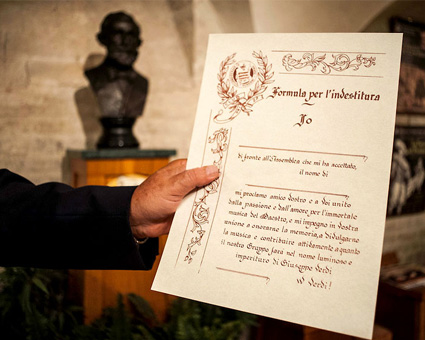 Formula per l'indestitura
Io
di fronte all'Assemblea che mi ha accettato,
il nome di
mi proclamo amico vostro e a voi unito
dalla passione e dall'amore per l'immortale
musica del Maestro, e mi impegno in vostra
unione a onorarne la memoria, a divulgarne
la musica e contribuire attivamente a quanto
il nostro Gruppo farà nel nome luminoso e
imperituro di Giuseppe Verdi
W Verdi!